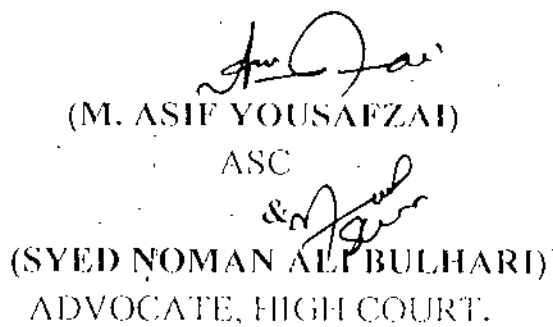 (M. ASIF YOUSAFZAI)
ASC
&
(SYED NOMAN ALI BULHARI)
ADVOCATE, HIGH COURT.